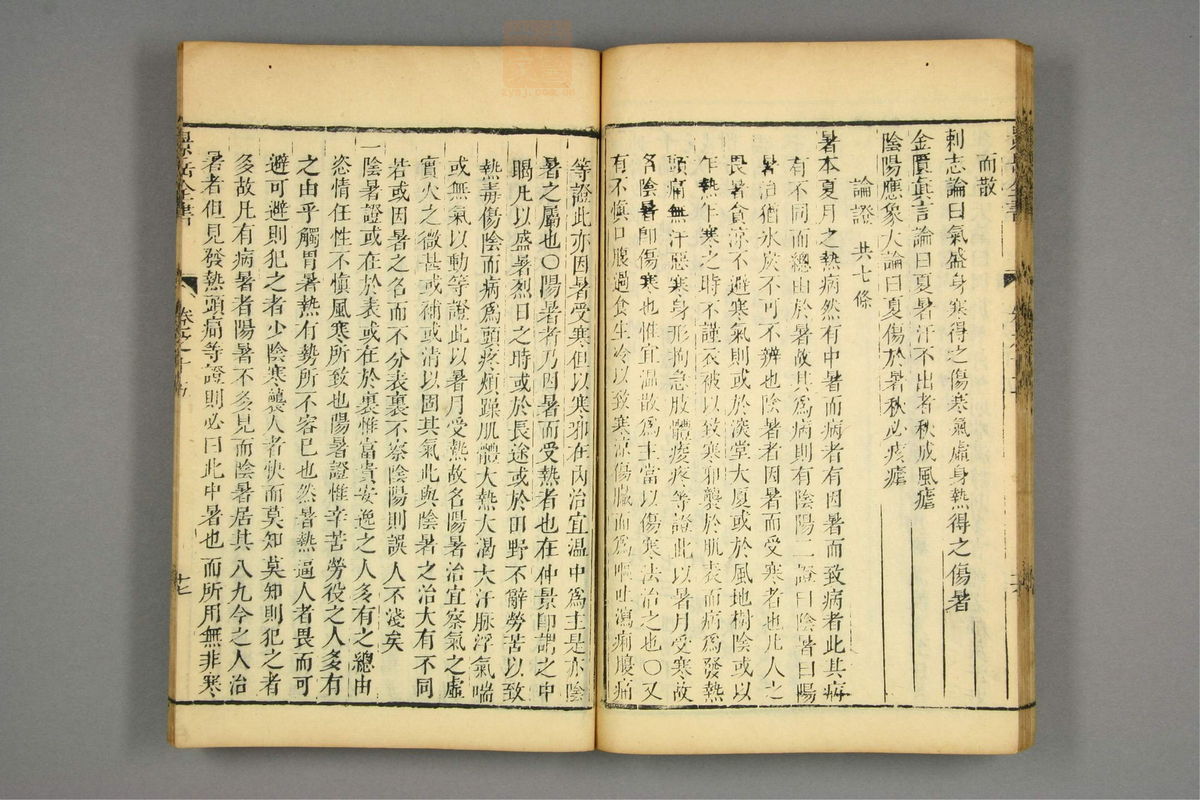 而散
刺志論曰氣盛身寒得之傷寒氣虛身熱得之傷暑
金匱真言論曰夏暑汗不出者秋成風瘧
陰陽應象大論曰夏傷於暑秋必痎瘧
論證 共七條
暑本夏月之熱病然有中暑而病者有因暑而致病者此其病
有不同而總由於暑故其爲病則有陰陽二證曰陰暑曰陽
暑治猶氷炭不可不辨也陰暑者因暑而受寒者也凡人之
畏暑貪涼不避寒氣則或於深堂大厦或於風地樹陰或以
乍熱乍寒之時不謹衣被以致寒邪襲於肌表而病爲發熱
頭痛無汗惡寒身形拘急肢體痠疼等證此以暑月受寒故
名陰暑卽傷寒也惟宜温散爲主當以傷寒法治之也〇又
有不慎口腹過食生冷以致寒涼傷臟而爲嘔吐瀉痢腹痛
等證此亦因暑受寒但以寒邪在內治宜温中爲主是亦陰
暑之屬也〇陽暑者乃因暑而受熱者也在仲景卽謂之中
暍凡以盛暑烈日之時或於長途或於田野不辭勞苦以致
熱毒傷陰而病爲頭疼煩躁肌體大熱大渴大汗脉浮氣喘
或無氣以動等證此以暑月受熱故名陽暑治宜察氣之虛
實火之微甚或補或清以固其氣此與陰暑之治大有不同
若或因暑之名而不分表裏不察陰陽則誤人不淺矣
一陰暑證或在於表或在於裏惟富貴安逸之人多有之總由
恣情任性不慎風寒所致也陽暑證惟辛苦勞役之人多有
之由乎觸冒暑熱有勢所不容已也然暑熱逼人者畏而可
避可避則犯之者少陰寒襲人者快而莫知莫知則犯之者
多故凡有病暑者陽暑不多見而陰暑居其八九今之人治
暑者但見發熱頭痛等證則必曰此中暑也而所用無非寒
十七
zysj.com.cn